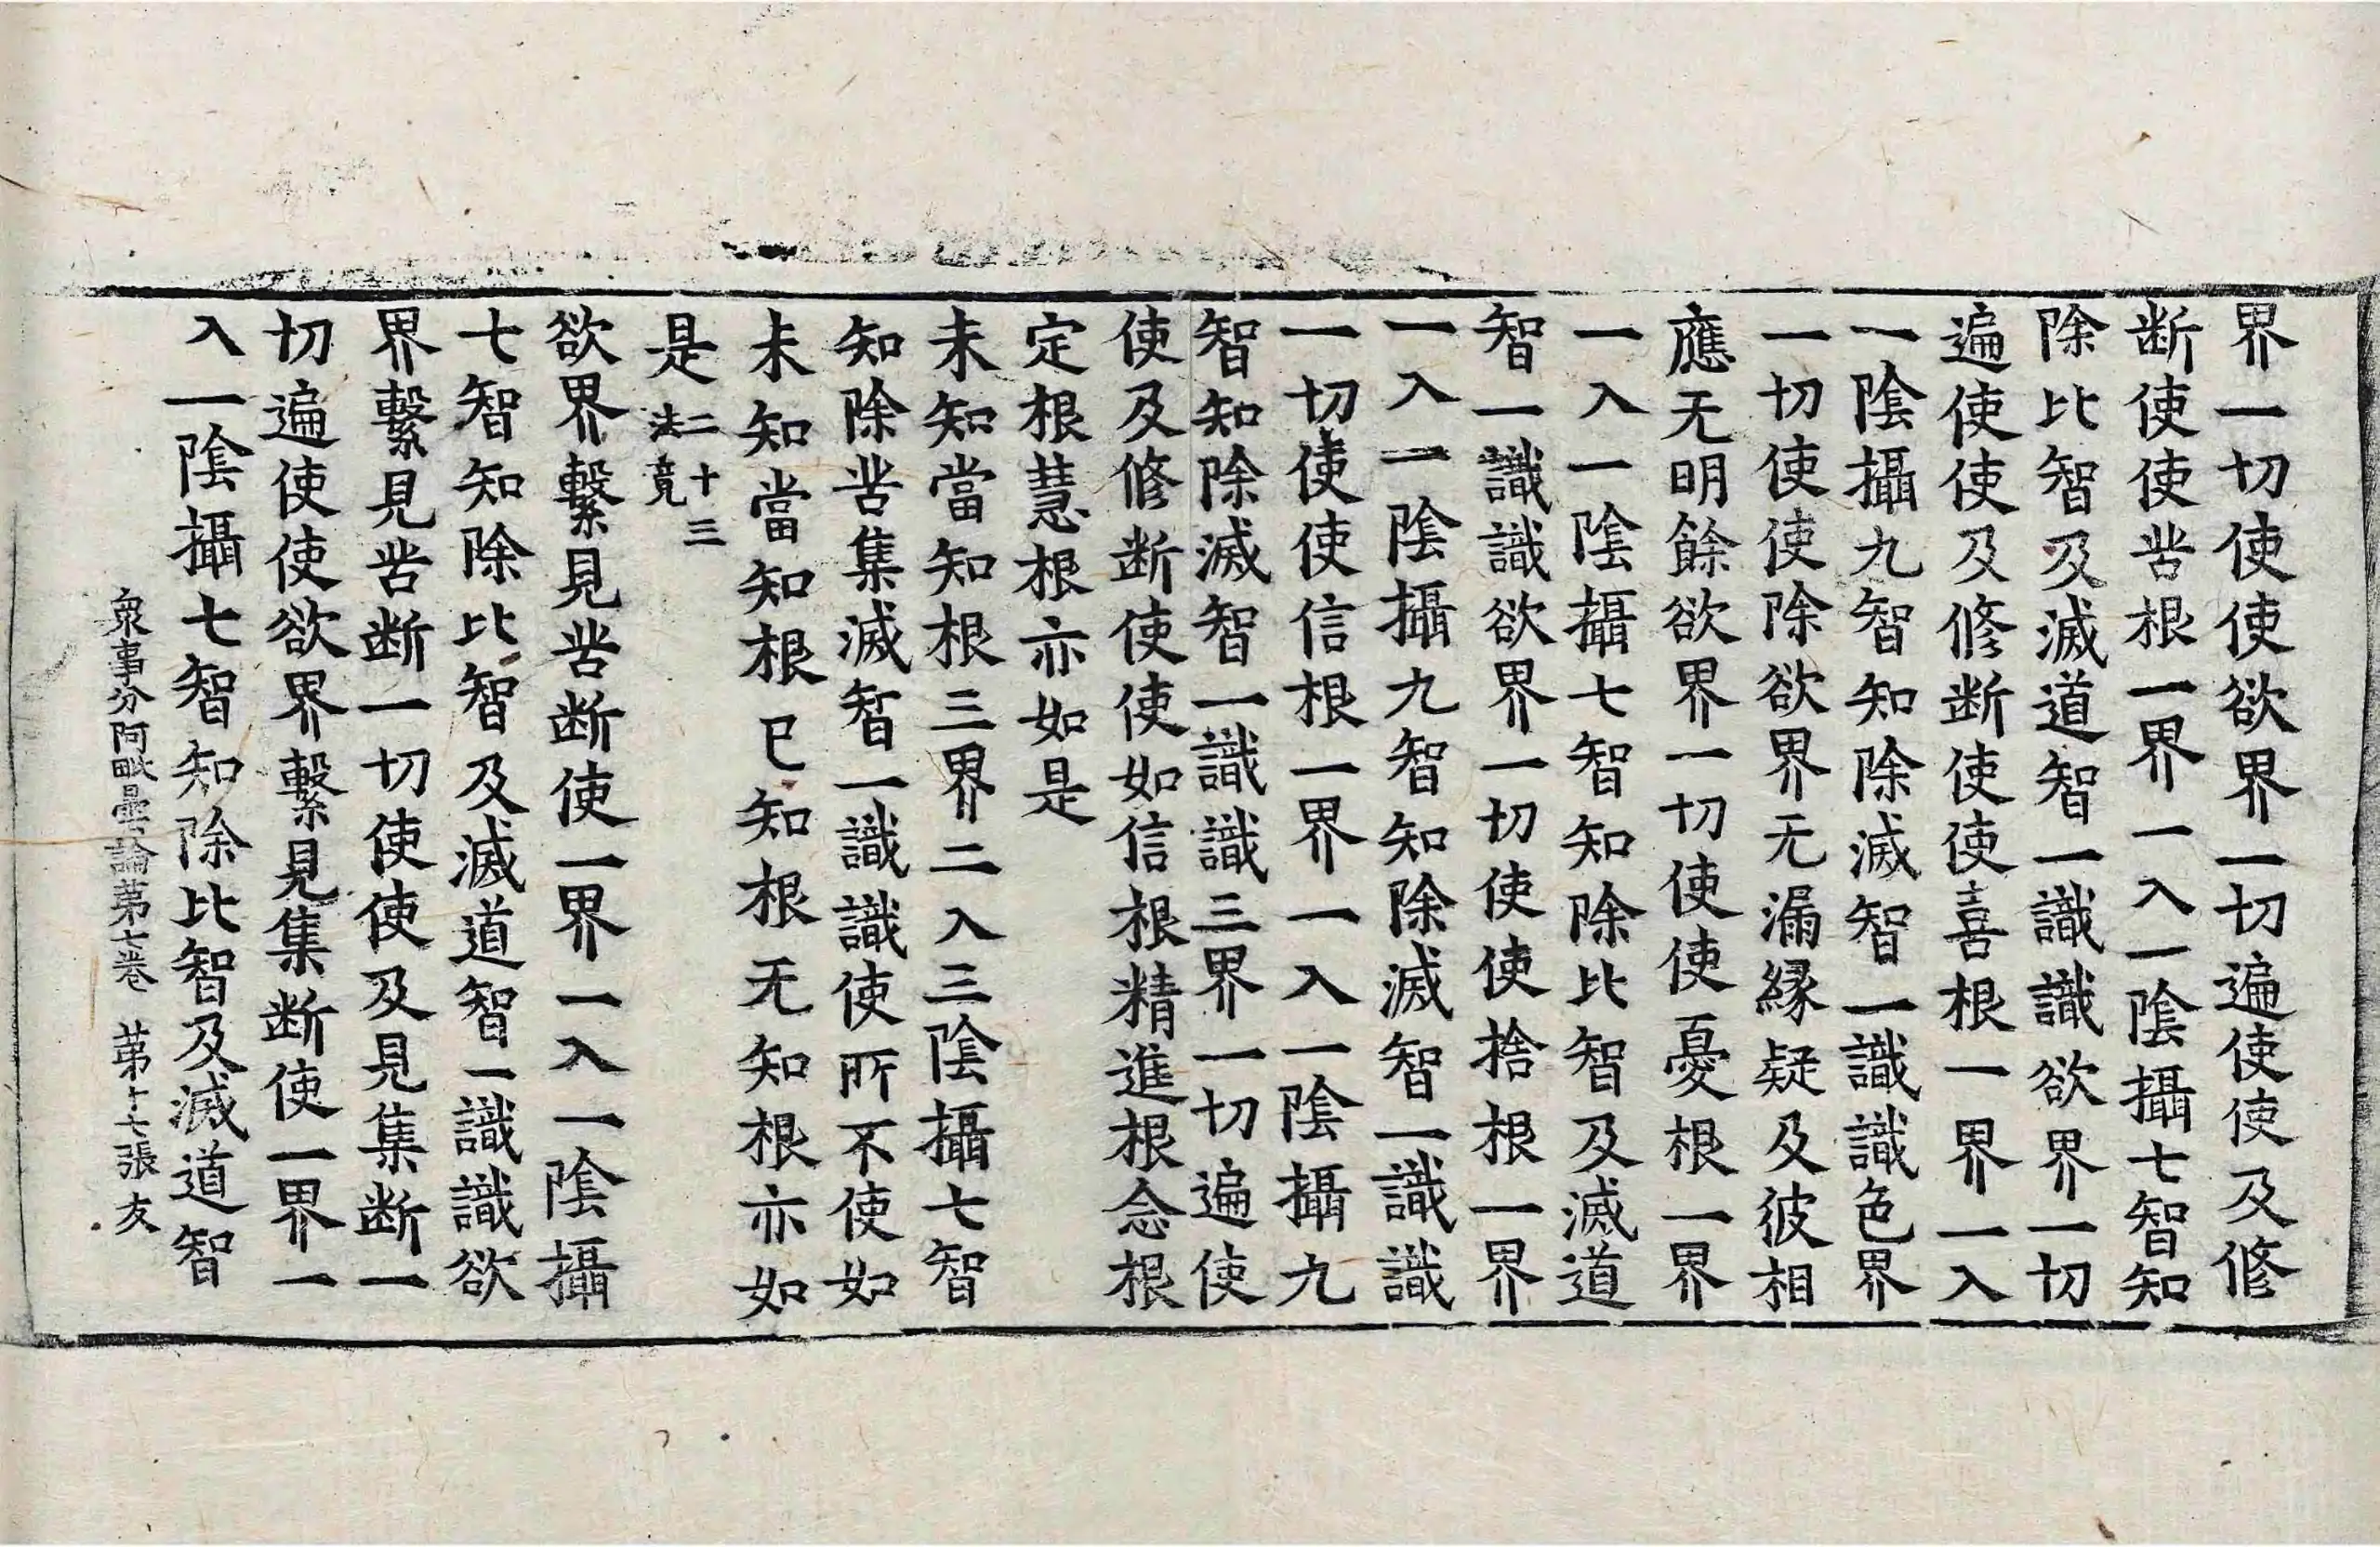 界一切使使欲界一切遍使使及修
断使使苦根一界一入一陰攝七智知
除比智及滅道智一識識欲界一切
遍使使及修断使使喜根一界一入
一陰攝九智知除滅智一識識色界
一切使使除欲界无漏縁疑及彼相
應无明餘欲界一切使使憂根一界
一入一陰攝七智知除比智及滅道
智一識識欲界一切使使捨根一界
一入一陰攝九智知除滅智一識識
一切使使信根一界一入一陰攝九
智知除滅智一識識三界一切遍使
使及修断使使如信根精進根念根
定根慧根亦如是
未知當知根三界二入三陰攝七智
知除苦集滅智一識識使所不使如
未知當知根已知根无知根亦如
是二十三法竟
欲界繫見苦断使一界一入一陰攝
七智知除比智及滅道智一識識欲
界繫見苦断一切使使及見集断一
切遍使使欲界繫見集断使一界一
入一陰攝七智知除比智及滅道智
衆事分阿毗曇論苐七卷 苐十七張 友